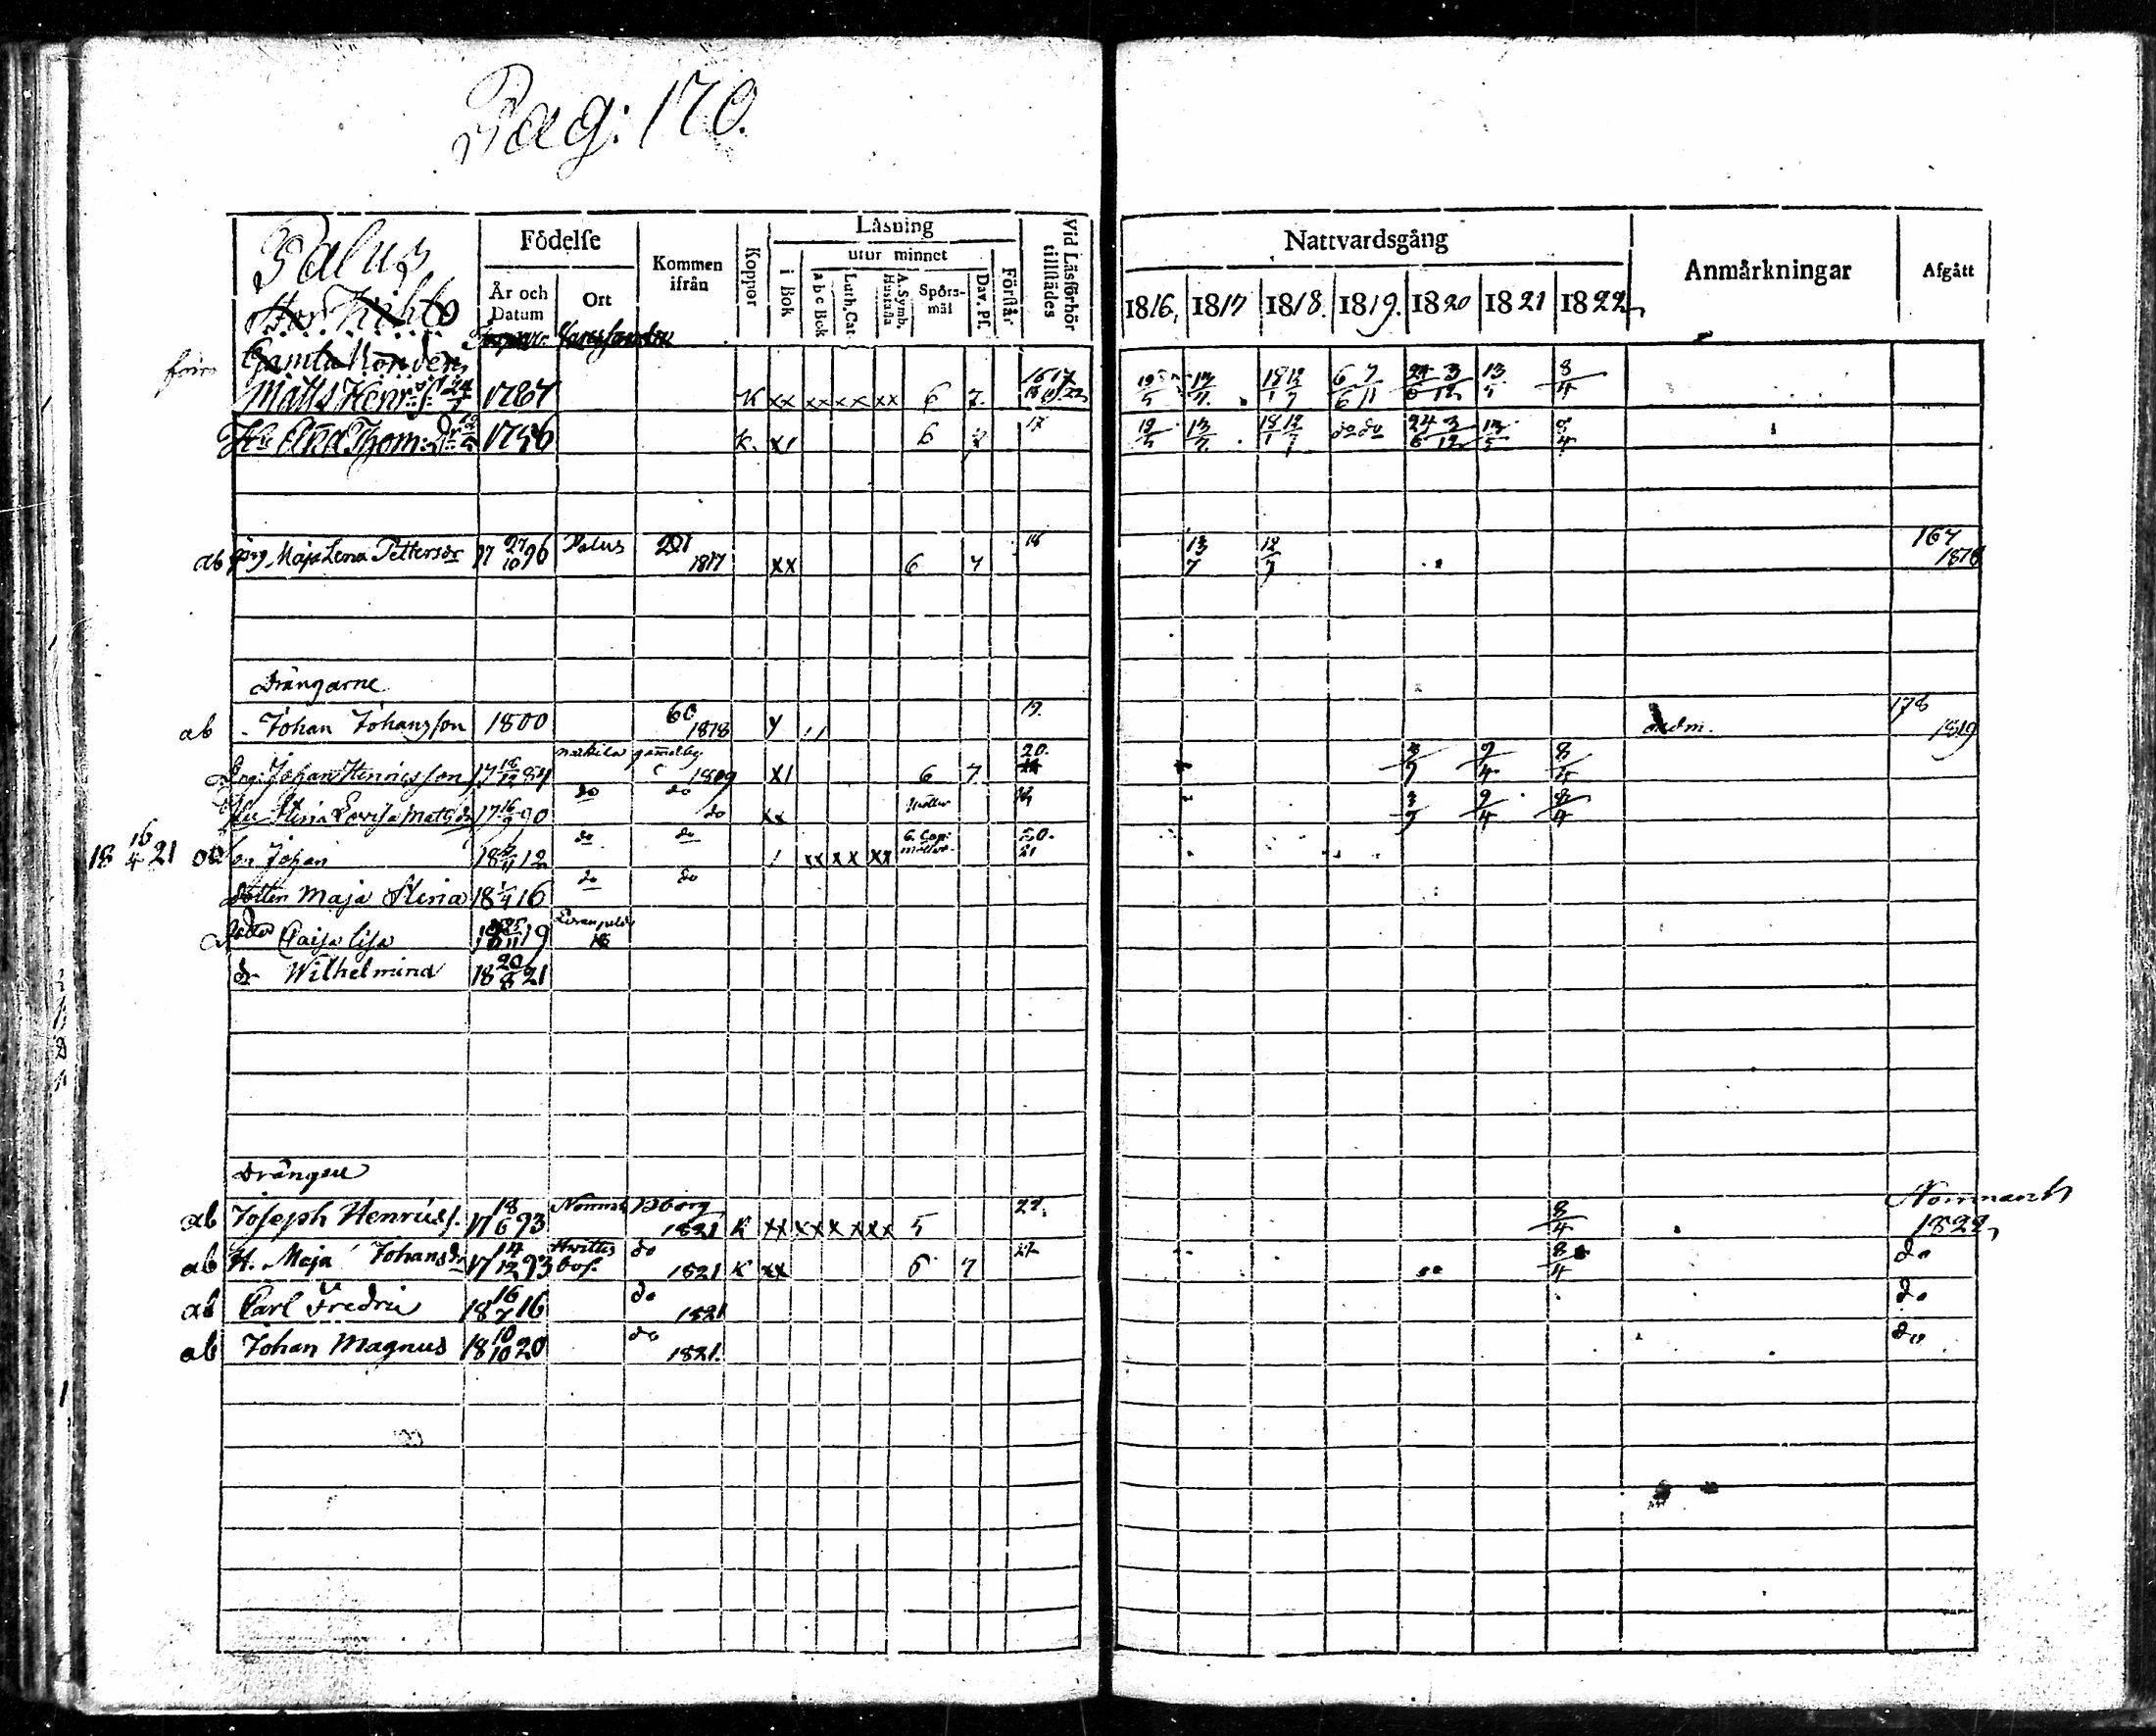 Pag: 170.
Palus
Födelse
Kommen ifrån
Koppor
Läsning
Vid Läsförhör tillstädes
Nattvardsgång
Anmärkningar
Afgått
År och Datum
Ort
i Bok
utur minnet
Förstår
abc Bok
Luth. Cat.
A. Symb. Hustafla
Spörsmål
Dav. Ps.
1816. 1817 1818. 1819. 1820 1821 1822
Gamla Bonden
Matts Henr:s: 24/7 1767 K xx xx xx xx 6 7. 13/7 18/1 12/7 6/6 7/11 24/6 3/12 13/5 8/4
Hu Elisa Thom:dr 1756 K. x1 6 17 13/7 18/1 12/7 do do 24/6 3/12 13/5 8/4
ab pig. Maja Lena Pettersdr 17 27/10 96 Palus 201 1817 xx 6 7 18 13/7 12/7 167 1818
Drängarne
ab Johan Johansson 1800 60 1818 19. adm. 178 1819
Johan Henricsson 17 18/12 84 gamelby 1809 x1 6 7. 20. 3/9 9/4 8/4
Hu Stina Lovisa Mattsdr 17 16/9 90 do do do xx 3/9 9/4 8/4
18 16/4 21 Son Johan 18 12 do do 1 xx xx xx 20. 21
dotter Maja Stina 18 1/4 16 do do
dotter Caisa Lisa 18 25/11 19
dr Wilhelmina 18 20/8 21
Drängen
ab Joseph Henricss. 17 18/6 93 Nommsh Bborg 1821 K xx xx x xxx 5 22. 8/4 Norrmarck 1822
ab H. Maja Johansdr 17 14/12 93 Hvittis bof. do 1821 K xx 6 7 22 8/4 do
ab Carl Fredric 18 16/7 16 do 1821 do
ab Johan Magnus 18 10/10 20 do 1821. do